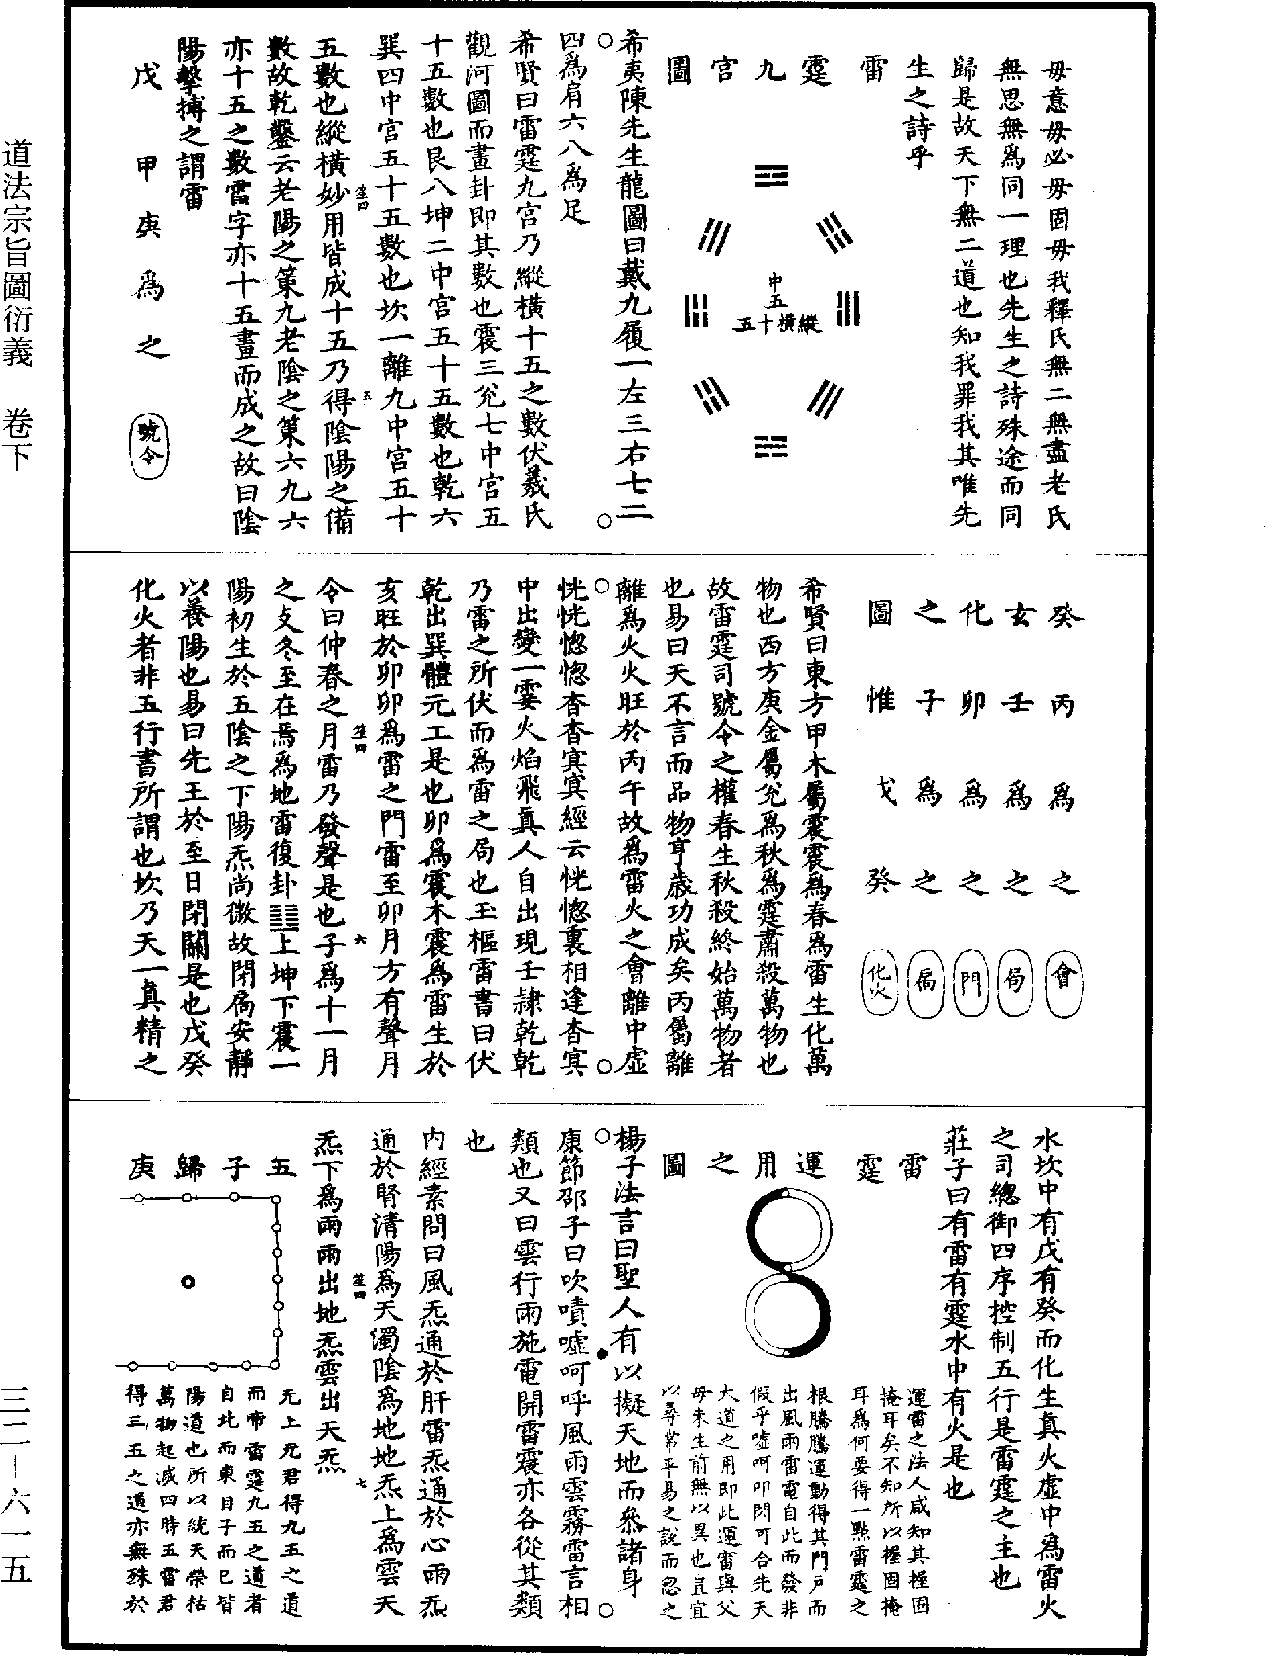 道法宗旨圖衍義　卷下
三二—六一五
毋意毋必毋固毋我釋氏無二無盡老氏
無思無爲同一理也先生之詩殊途而同
歸是故天下無二道也知我罪我其唯先
生之詩乎
雷霆九宮圖
中五
縱橫十五
希夷陳先生龍圖曰戴九履一左三右七二
四爲肩六八爲足
希賢曰雷霆九宮乃縱橫十五之數伏羲氏
觀河圖而畫卦即其數也震三兌七中宮五
十五數也艮八坤二中宮五十五數也乾六
巽四中宮五十五數也坎一離九中宮五十
五數也縱橫妙用皆成十五乃得陰陽之備
數故乾鑿云老陽之策九老陰之策六九六
亦十五之數雷字亦十五畫而成之故曰陰
陽擊搏之謂雷
戊甲庚爲之號令
癸丙爲之會
玄壬爲之局
化卯爲之門
之子爲之扃
圖惟戊癸化火
希賢曰東方甲木屬震震爲春爲雷生化萬
物也西方庚金屬兌爲秋爲霆肅殺萬物也
故雷霆司號令之權春生秋殺終始萬物者
也易曰天不言而品物亨歲功成矣丙屬離
離爲火火旺於丙午故爲雷火之會離中虛
恍恍惚惚杳杳冥冥經云恍惚裏相逢杳冥
中出變一霎火焰飛真人自出現壬隷乾乾
乃雷之所伏而爲雷之局也玉樞雷書曰伏
乾出巽體元工是也卯爲震木震爲雷生於
亥旺於卯卯爲雷之門雷至卯月方有聲月
令曰仲春之月雷乃發聲是也子爲十一月
之爻冬至在焉爲地雷復卦䷗上坤下震一
陽初生於五陰之下陽炁尚微故閉扃安靜
以養陽也易曰先王於至日閉關是也戊癸
化火者非五行書所謂也坎乃天一真精之
水坎中有戊有癸而化生真火虛中爲雷火
之司總御四序控制五行是雷霆之主也
莊子曰有雷有霆水中有火是也
雷霆運用之圖
運雷之法人咸知其握固
掩耳矣不知所以握固掩
耳爲何要得一點雷霆之
根騰騰運動得其門戶而
出風雨雷電自此而發非
假乎噓呵叩問可合先天
大道之用即此運雷與父
母未生前無以異也豈宜
以尋常平易之說而忽之
楊子法言曰聖人有以擬天地而參諸身
康節邵子曰吹噴噓呵呼風雨雲霧雷言相
類也又曰雲行雨施電開雷震亦各從其類
也
內經素問曰風炁通於肝雷炁通於心雨炁
通於腎清陽爲天濁陰爲地地炁上爲雲天
炁下爲雨雨出地炁雲出天炁
五子歸庚
元上元君得九五之道
而帝雷霆九五之道者
自北而東自子而巳皆
陽道也所以統天榮枯
萬物起滅四時五雷君
得三五之道亦無殊於